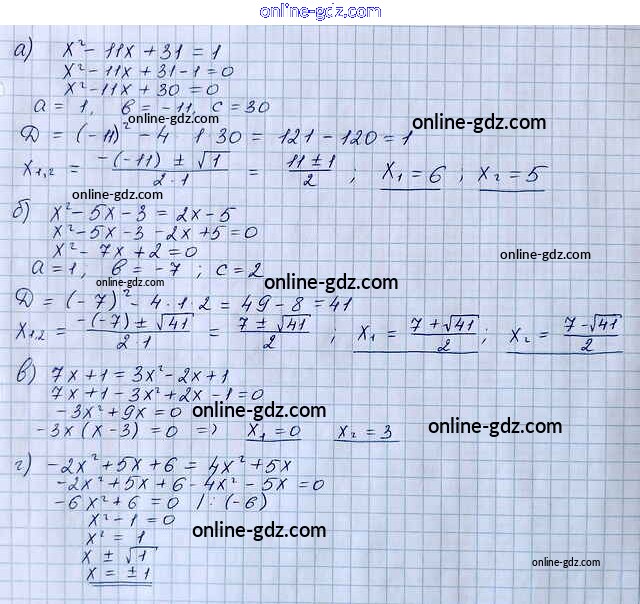 online-gdz.com
а) x² - 11x + 31 = 1
x² - 11x + 31 - 1 = 0
x² - 11x + 30 = 0
a = 1, в = -11, c = 30
online-gdz.com
Д = (-11)² - 4 · 1 · 30 = 121 - 120 = 1
x₁,₂ = (-(-11) ± √1)/(2·1) = (11 ± 1)/2 ; x₁ = 6 ; x₂ = 5
online-gdz.com
online-gdz.com
б) x² - 5x - 3 = 2x - 5
x² - 5x - 3 - 2x + 5 = 0
x² - 7x + 2 = 0
online-gdz.com
a = 1, в = -7 ; c = 2
online-gdz.com
Д = (-7)² - 4 · 1 · 2 = 49 - 8 = 41
x₁,₂ = (-(-7) ± √41)/(2·1) = (7 ± √41)/2 ; x₁ = (7 + √41)/2 ; x₂ = (7 - √41)/2
в) 7x + 1 = 3x² - 2x + 1
7x + 1 - 3x² + 2x - 1 = 0
-3x² + 9x = 0
online-gdz.com
-3x (x - 3) = 0 => x₁ = 0 x₂ = 3
online-gdz.com
г) -2x² + 5x + 6 = 4x² + 5x
-2x² + 5x + 6 - 4x² - 5x = 0
-6x² + 6 = 0 /: (-6)
x² - 1 = 0
online-gdz.com
x² = 1
x ± √1
x = ±1
online-gdz.com